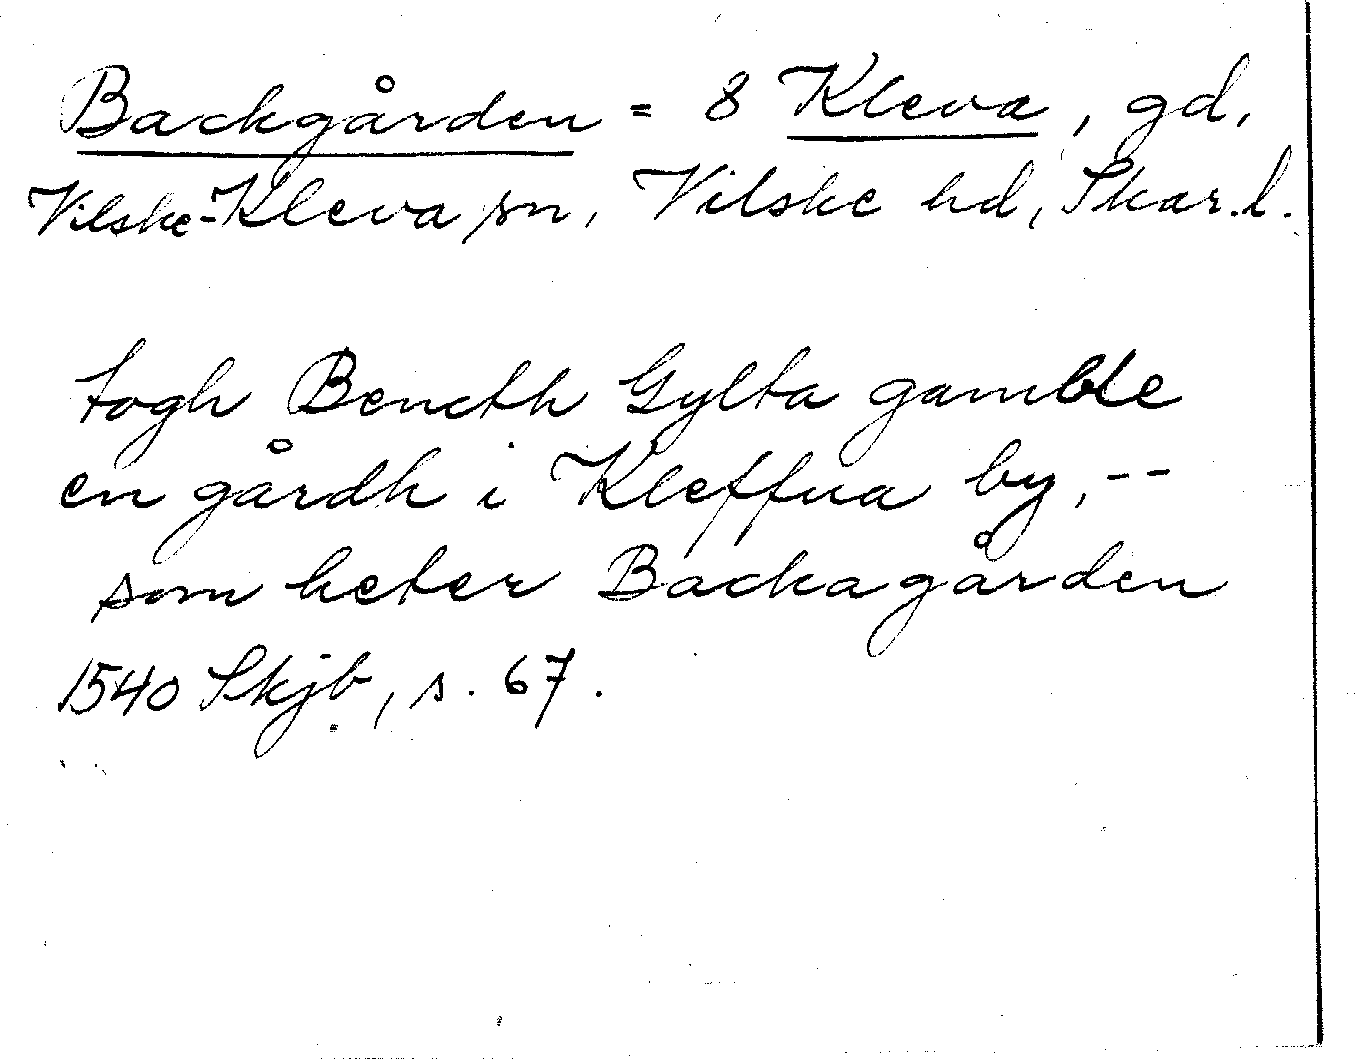 Backgården = 8 Kleva, gd,
Vilske-Kleva sn, Vilske hd, Skar. l.
togh Bencth Gylta gamble
en gårdh i Kleffua by, --
som heter Backagården
1540 Skjb, s. 67.